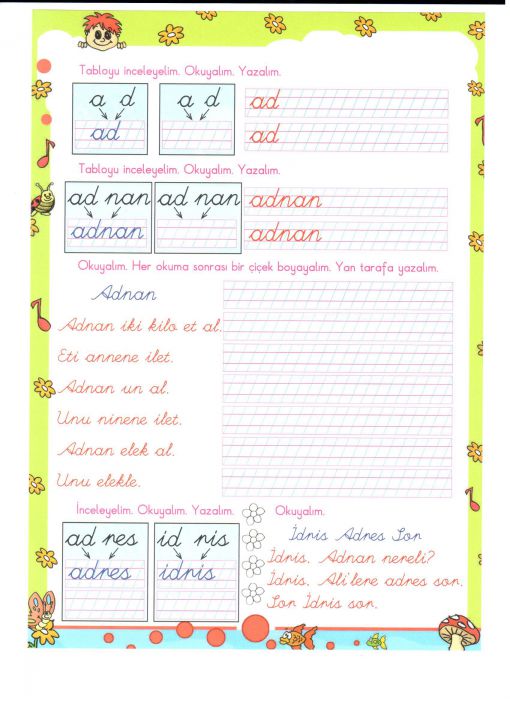 Tabloyu inceleyelim. Okuyalım. Yazalım.
a d a d ad
ad ad
Tabloyu inceleyelim. Okuyalım. Yazalım.
ad nan ad nan adnan
adnan adnan
Okuyalım. Her okuma sonrası bir çiçek boyayalım. Yan tarafa yazalım.
Adnan
Adnan iki kilo et al.
Eti annene ilet.
Adnan un al.
Unu ninene ilet.
Adnan elek al.
Unu elekle.
İnceleyelim. Okuyalım. Yazalım.
ad res id ris
adres idris
Okuyalım.
İdris Adres Sor
İdris, Adnan nereli?
İdris, Ali'lere adres sor.
Sor İdris sor.